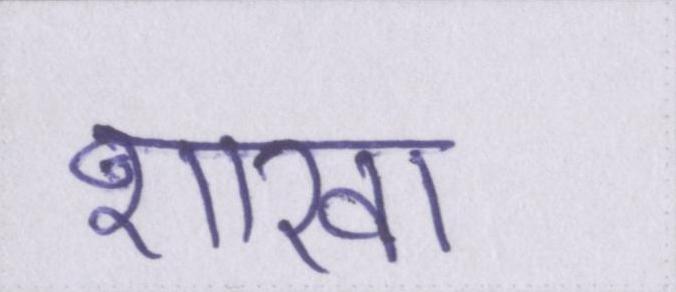 शाखा